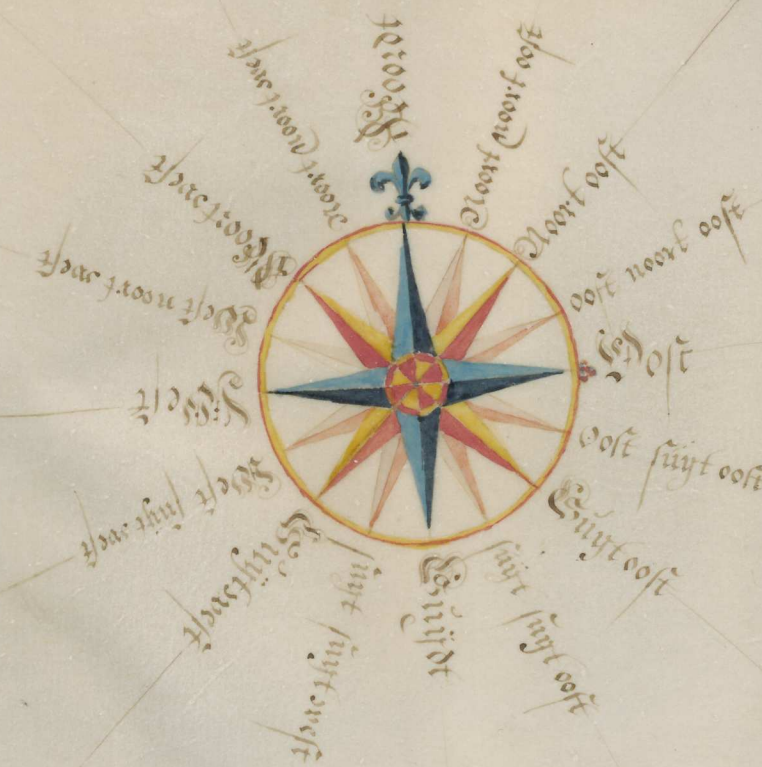 Noort
noort noort oost
Noort oost
oost noort oost
Oost
oost suyt oost
Suyt oost
suyt suyt oost
Suydt
suyt suyt west
Suyt west
West suyt west
West
West noort west
Noort west
noort noort west